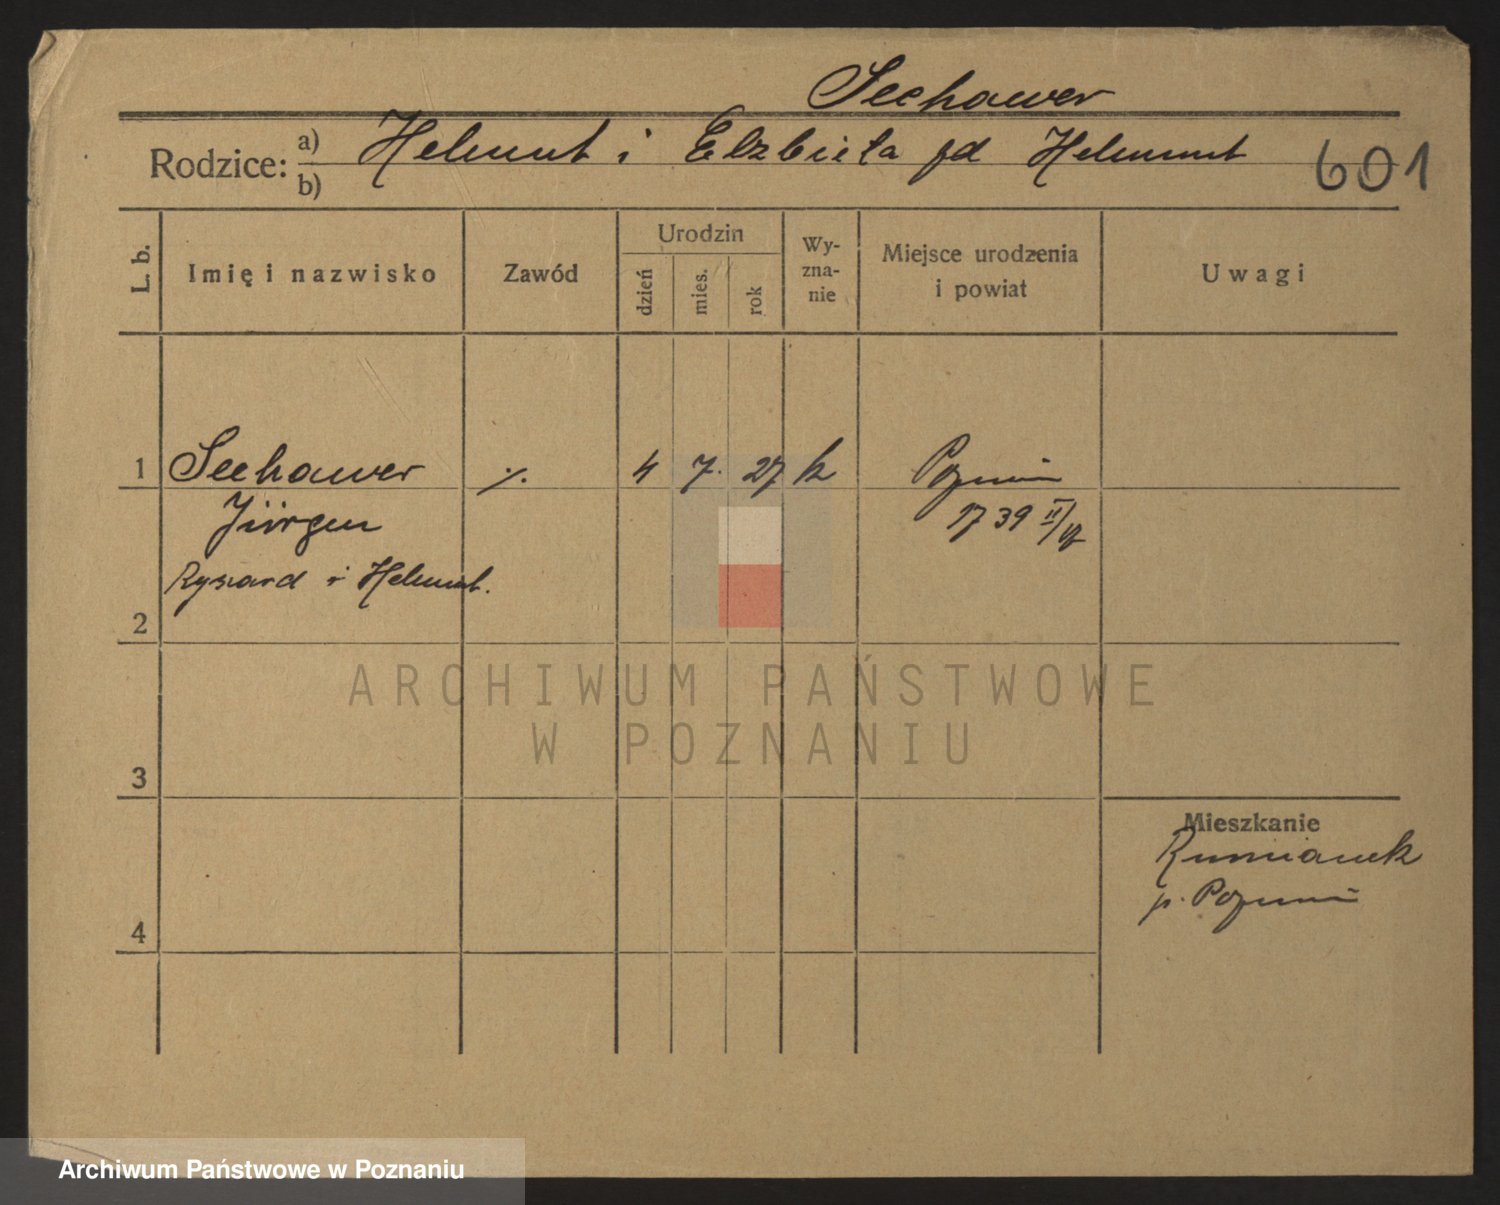 Seehawer
Rodzice: a) Helmut i Elzbieta fd Helmut
b)
601
L. b.
Imię i nazwisko
Zawód
Urodzin
dzień
mies.
rok
Wy-
zna-
nie
Miejsce urodzenia
i powiat
Uwagi
1 Seehawer ./. 4 7. 27 k Poznań
Jürgen 1739 II/
Ryszard i Helmut.
2
3
4
Mieszkanie
Rumianek
p. Poznań
ARCHIWUM PAŃSTWOWE
W POZNANIU
Archiwum Państwowe w Poznaniu